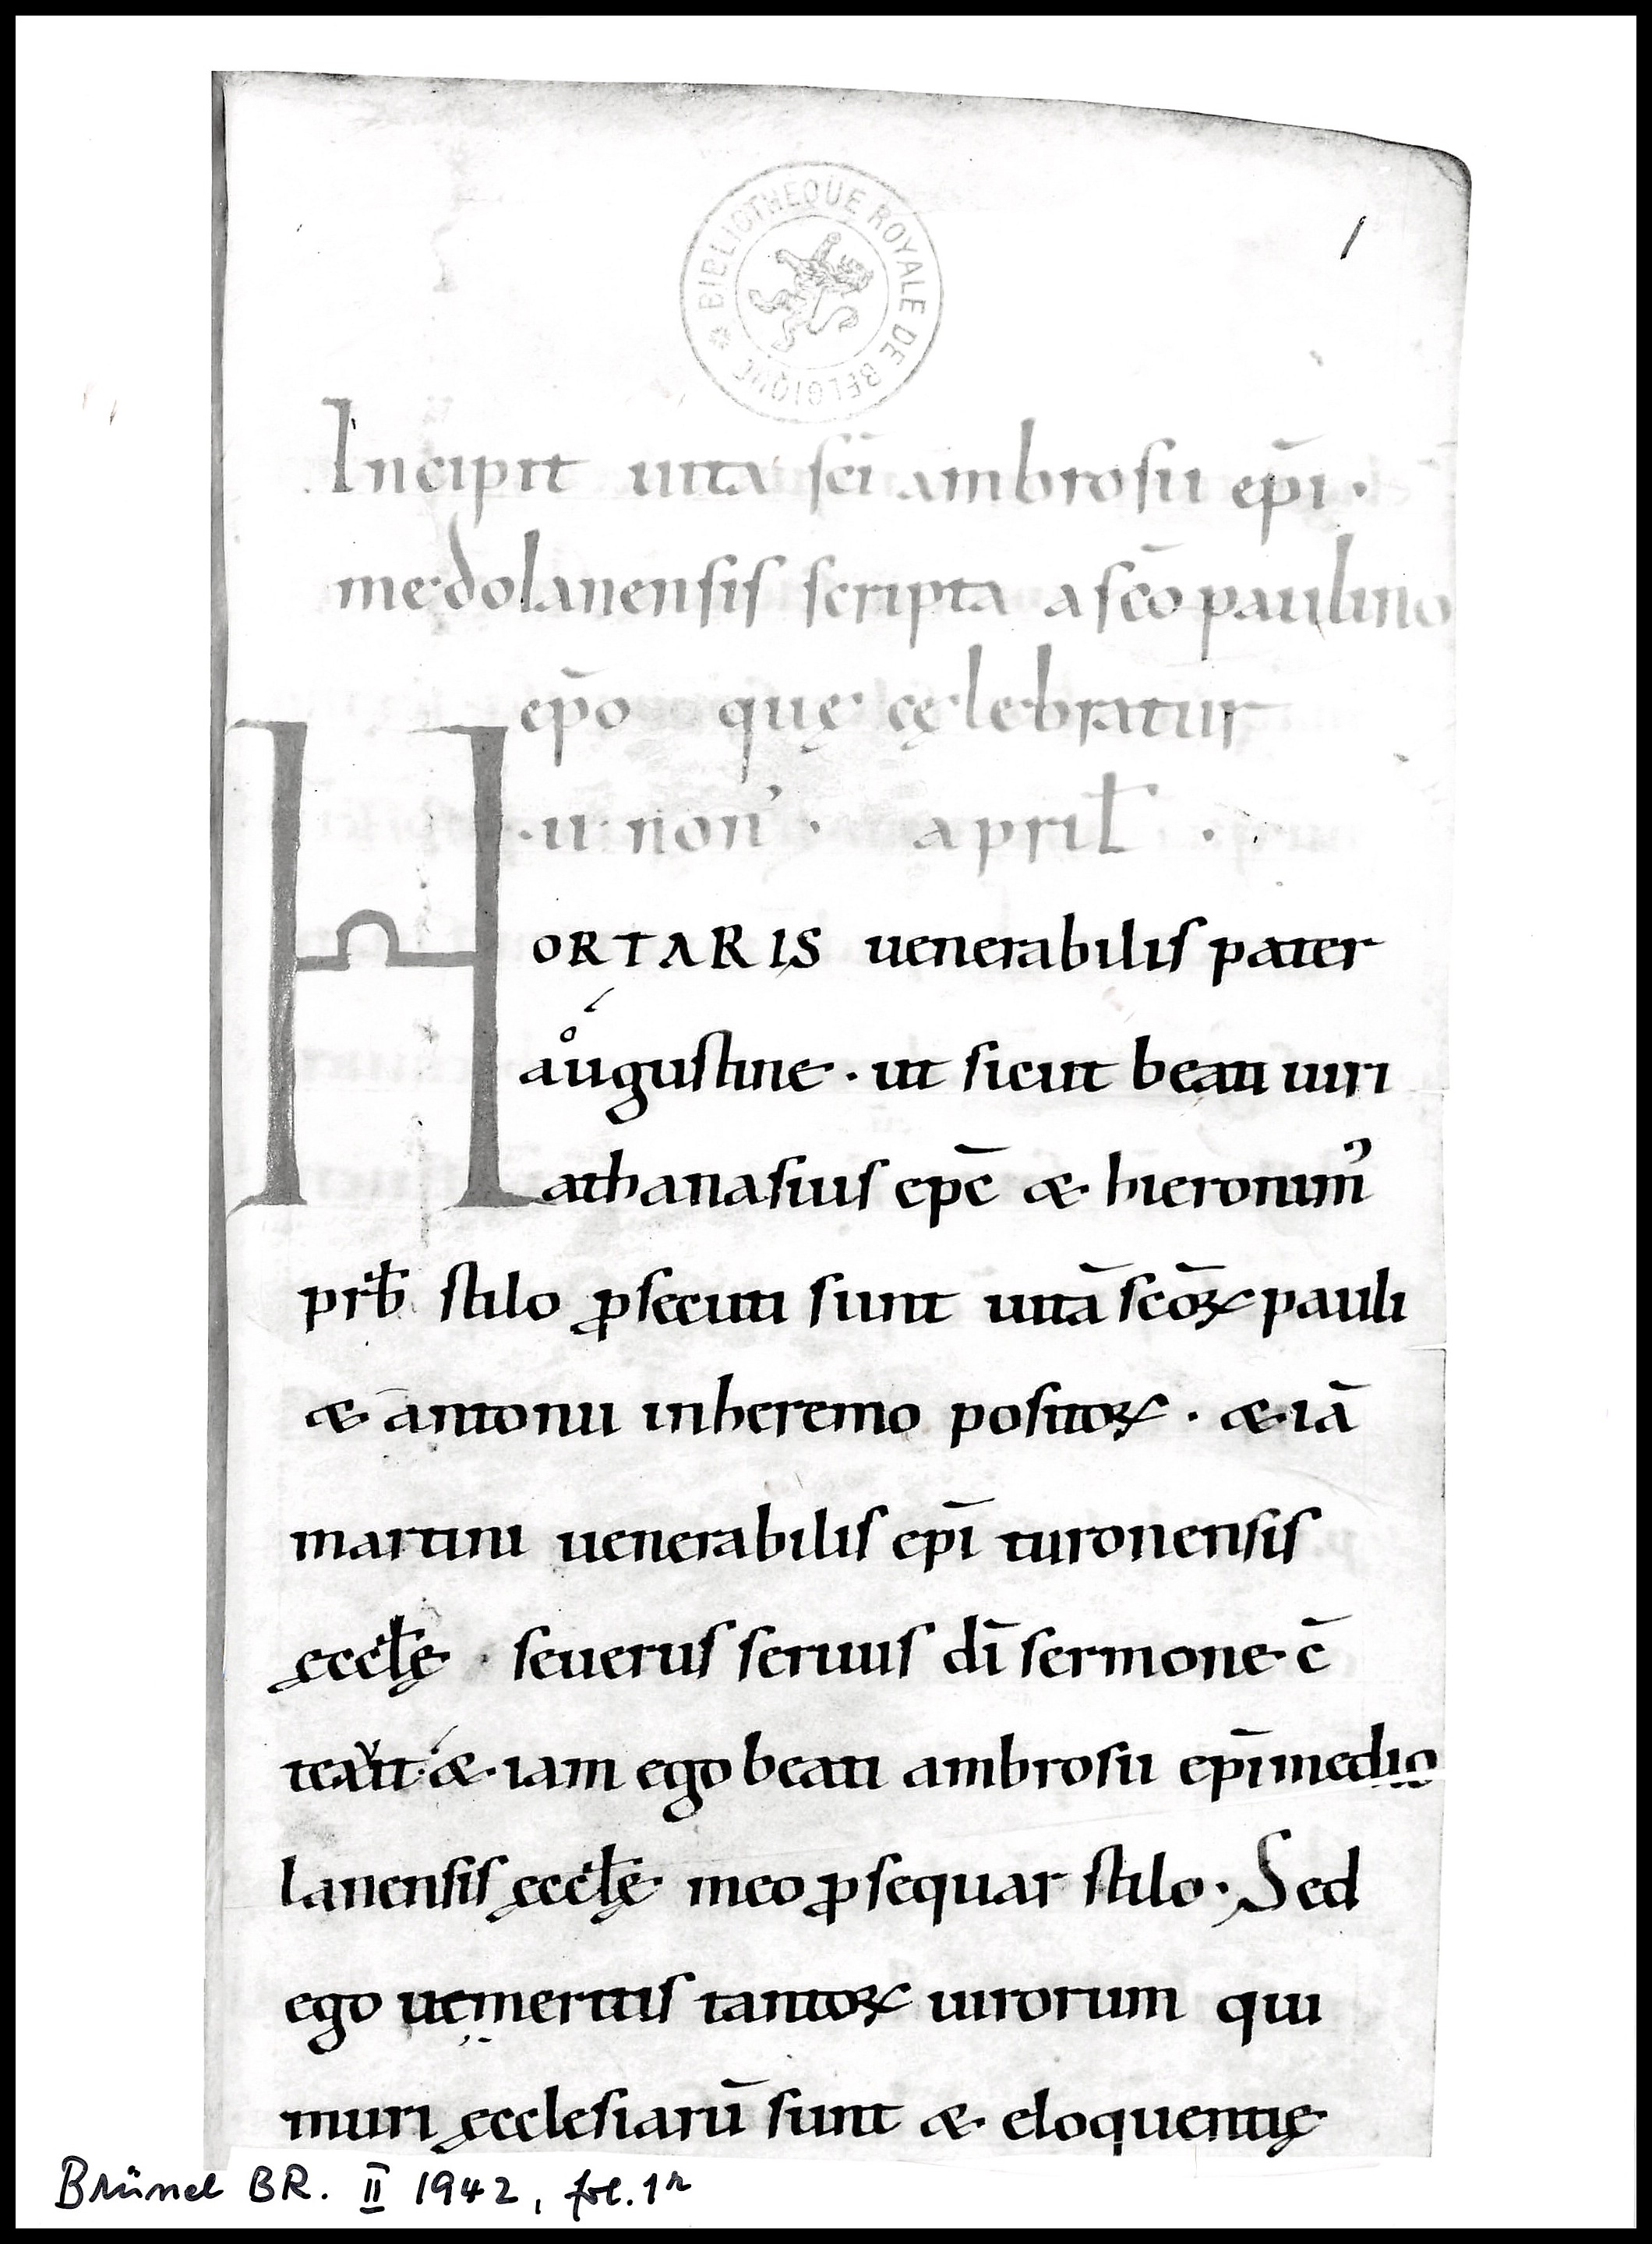 BIBLIOTHEQUE ROYALE DE BELGIQUE
1
Incipit uita sc̄i ambrosii ep̄i ·
medolanensis scripta a sc̄o paulino
ep̄o quę cęlebratur
· ii · non̄ · april̄ ·
HORTARIS uenerabilis pater
augustine · ut sicut beati uiri
athanasius ep̄c & hieronim᾿
prb̄ stilo ꝓsecuti sunt uitā sc̄oꝝ pauli
& antonii in heremo positoꝝ · & iā
martini uenerabilis ep̄i turonensis
ęccl̄ę · seuerus seruus dī sermone c̄
texuit & iam ego beati ambrosii ep̄i medio
lanensis ęccl̄ę meo ꝓsequar stilo · Sed
ego ut meritis tantoꝝ uirorum qui
muri ęcclesiarū sunt & eloquentię
Brüssel BR. II 1942, fol. 1r